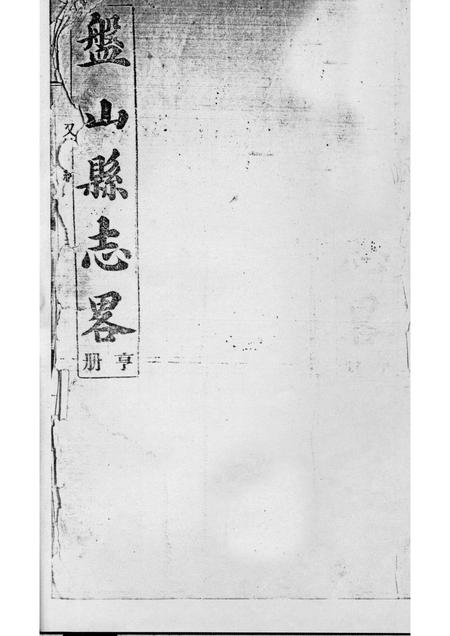 盤山縣志畧
亨册